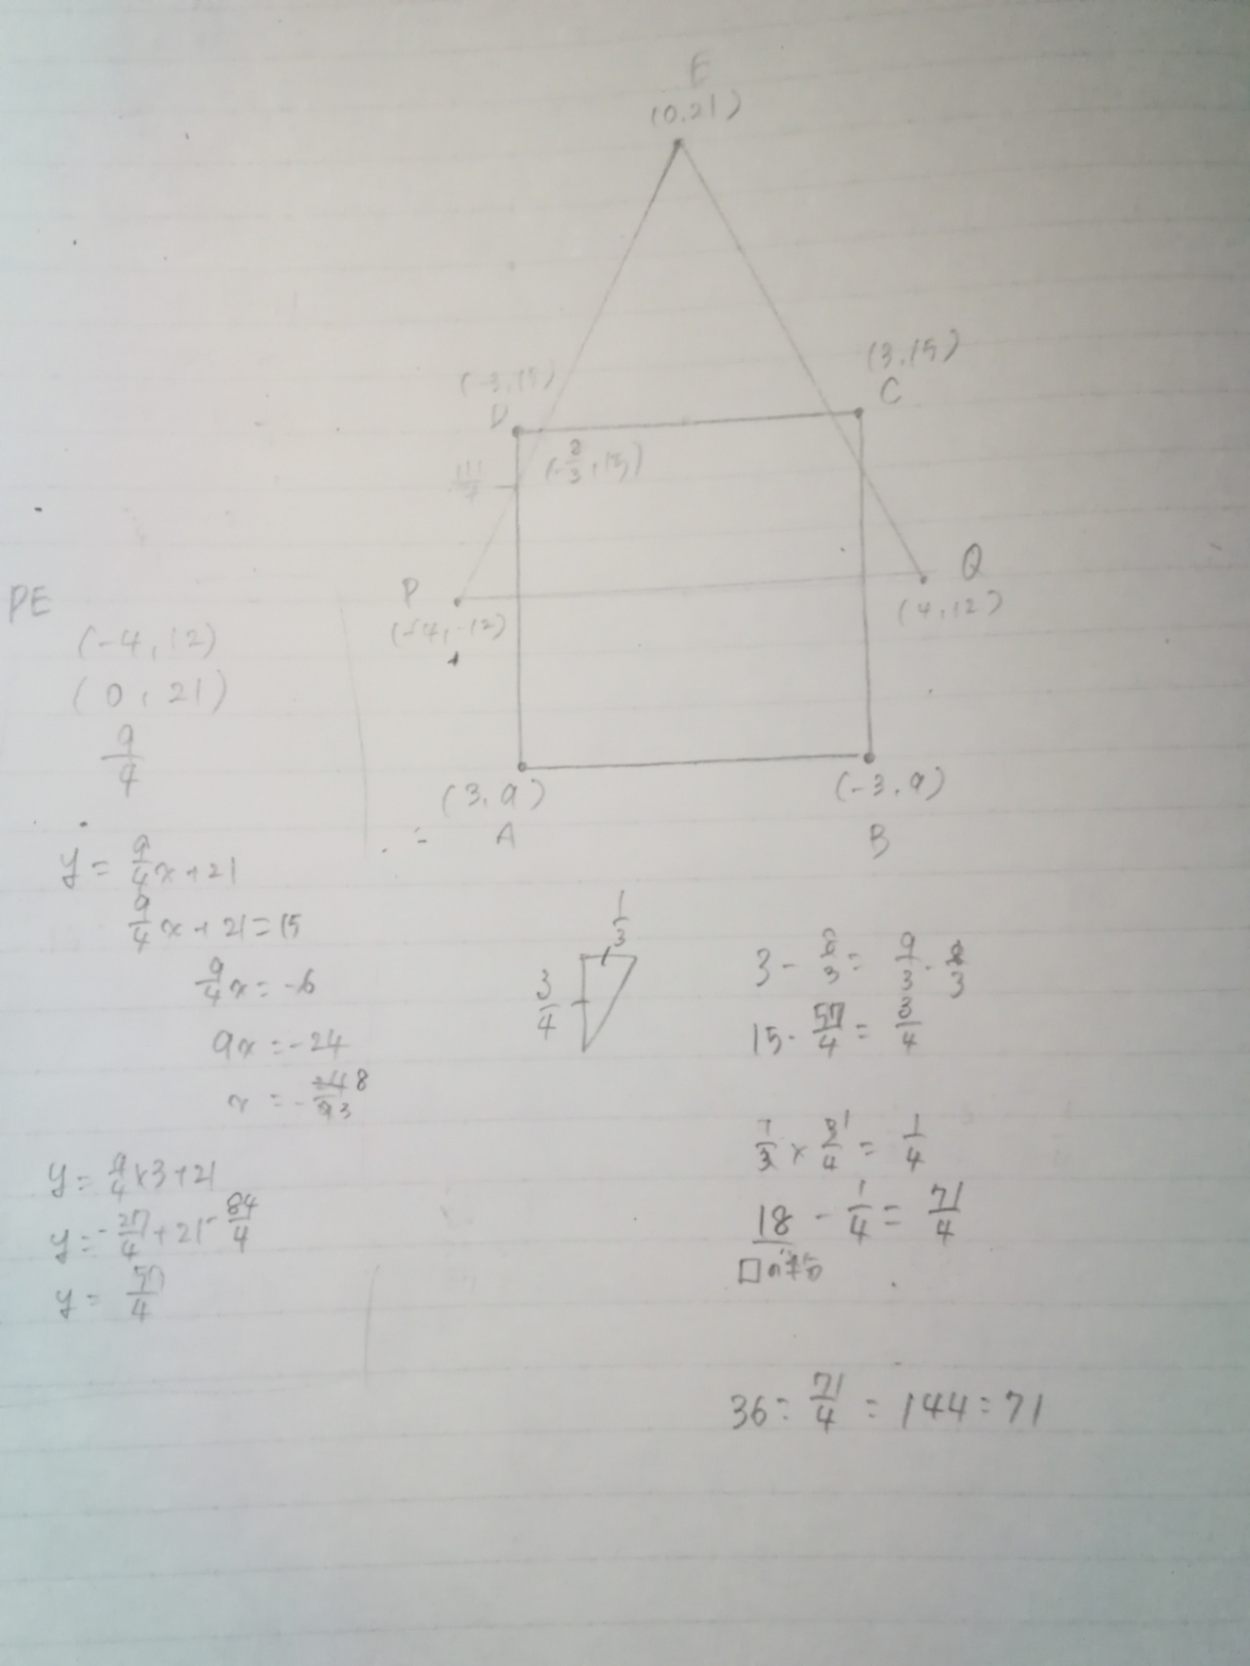 E
(0,21)
(-3,15)
D
(3,15)
C
(-8/3, 15)
P
(-4,-12)
Q
(4,12)
(3,9)
A
(-3,9)
B
PE
(-4,12)
(0,21)
9/4
y = 9/4 x + 21
9/4 x + 21 = 15
9/4 x = -6
9x = -24
x = -24/9 8/3
y = 9/4 × 3 + 21
y = -27/4 + 21 84/4
y = 57/4
1/3
3/4
3 - 8/3 = 9/3 - 8/3
15 - 57/4 = 3/4
1/3 × 3/4 = 1/4
18 - 1/4 = 71/4
□の半分
36 : 71/4 = 144 : 71